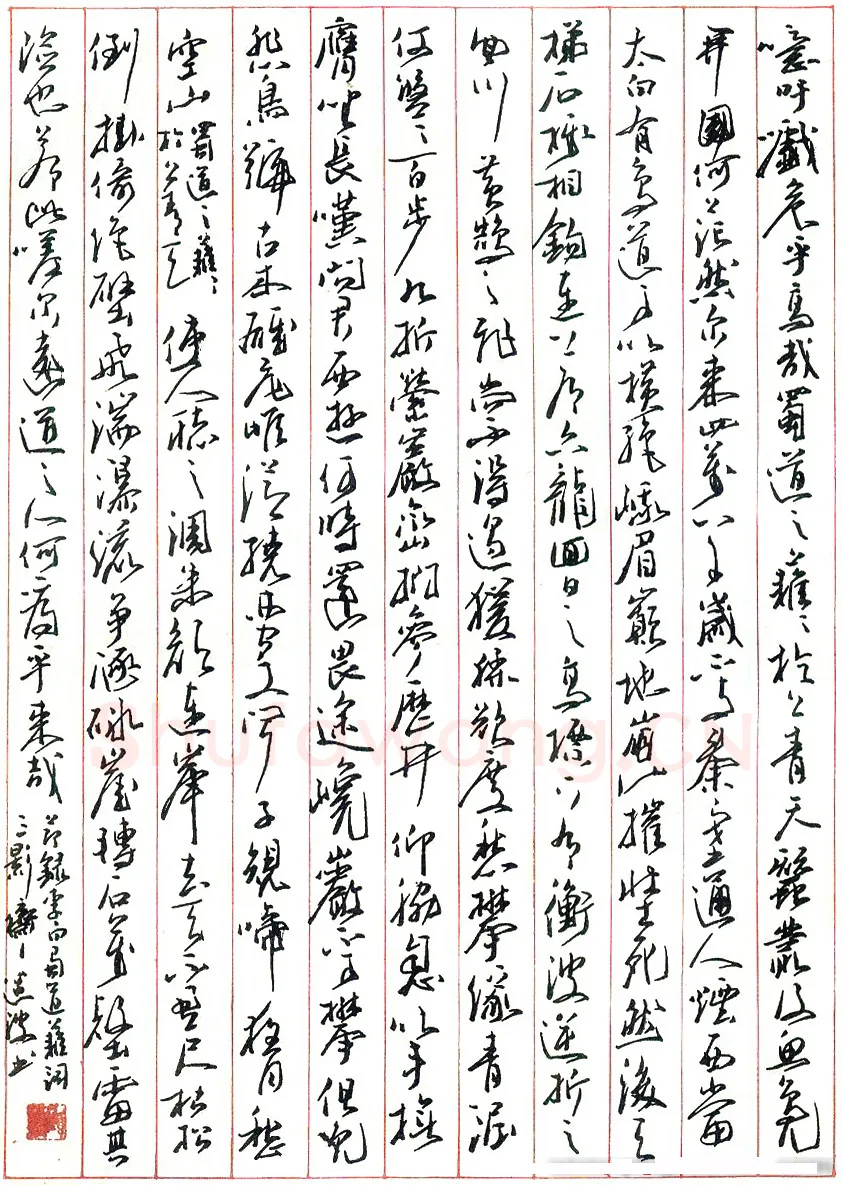 噫吁嚱危乎高哉蜀道之難難於上青天蠶叢及魚鳧
開國何茫然尔來四萬八千歲不與秦塞通人煙西當
太白有鳥道可以橫絕峨眉巔地崩山摧壯士死然後天
梯石棧相鉤連上有六龍回日之高標下有衝波逆折之
回川黃鶴之飛尚不得過猨猱欲度愁攀緣青泥
何盤盤百步九折縈巖巒捫參歷井仰脅息以手撫
膺坐長嘆問君西遊何時還畏途巉巖不可攀但見
悲鳥號古木雄飛雌從繞林間又聞子規啼夜月愁
空山蜀道之難難於上青天使人聽之凋朱顏連峯去天不盈尺枯松
倒掛倚絕壁飛湍瀑流爭砯崖轉石萬壑雷其
險也若此嗟尔遠道之人何為乎來哉
節錄李白蜀道難詞
三影齋書
Shufawang.CN